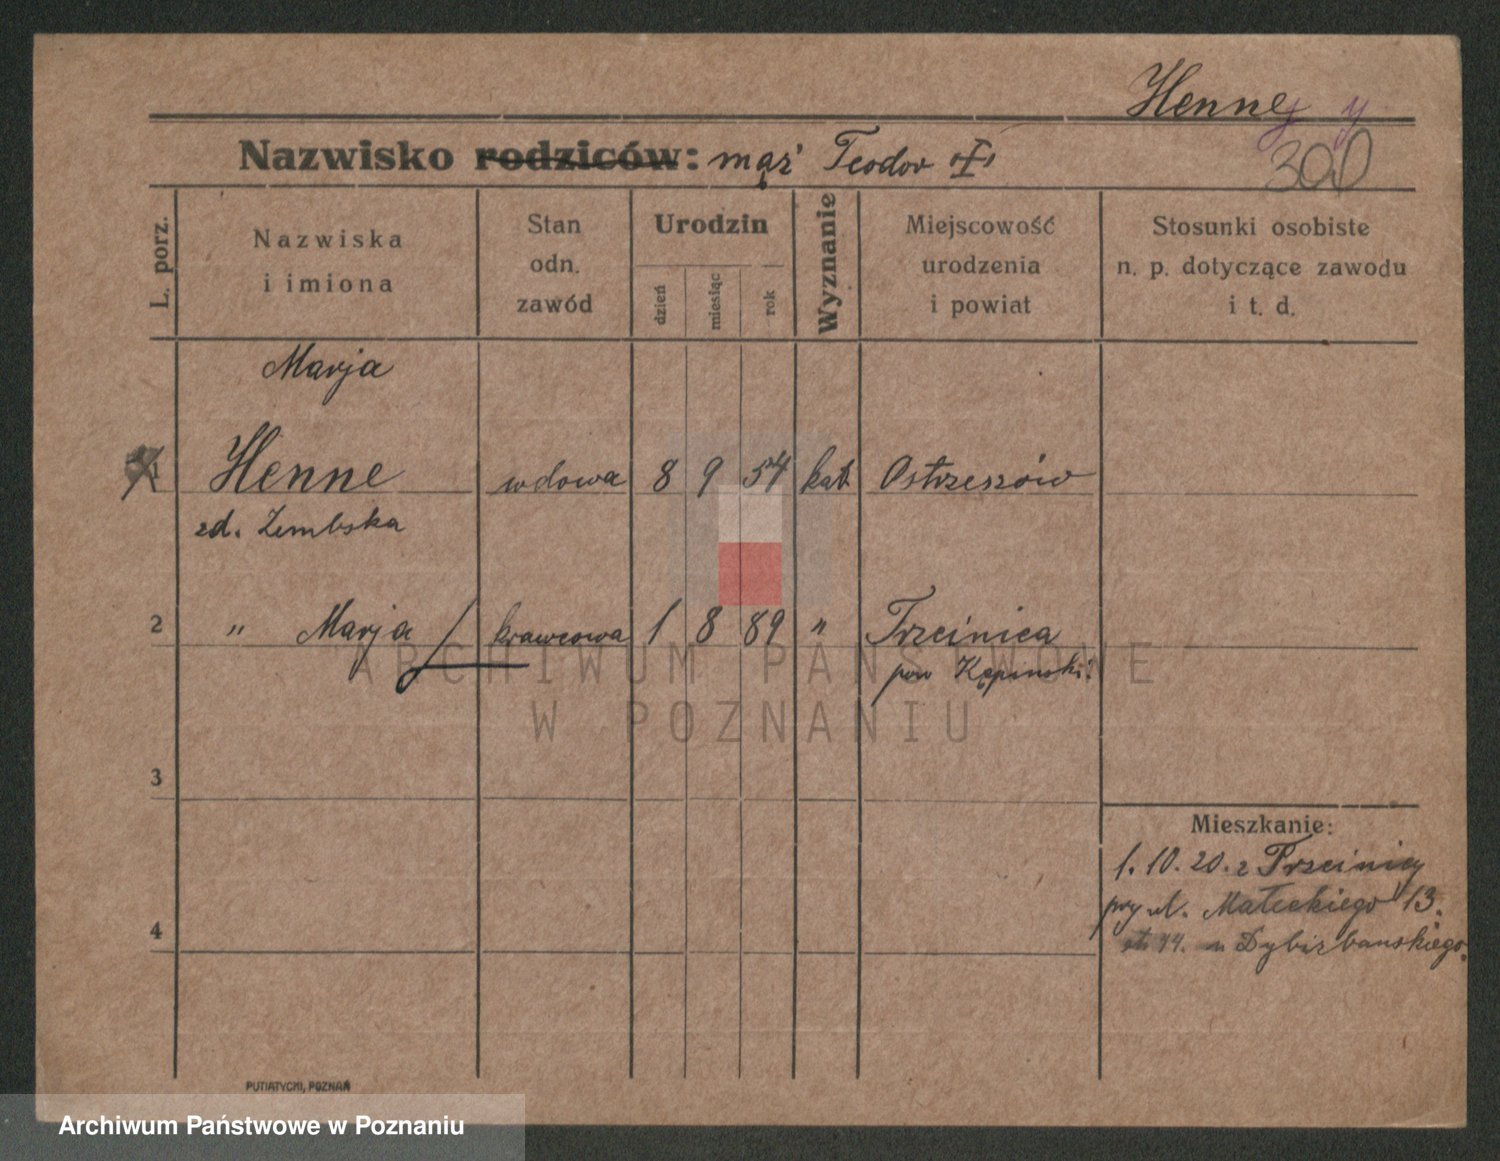 Henne
y
300
Nazwisko rodziców: mąż Teodor
L. porz.
Nazwiska
i imiona
Stan
odn.
zawód
Urodzin
dzień
miesiąc
rok
Wyznanie
Miejscowość
urodzenia
i powiat
Stosunki osobiste
n. p. dotyczące zawodu
i t. d.
Marja
1 Henne wdowa 8 9 54 kat Ostrzeszów
zd. Zembska
2 " Marja krawcowa 1 8 89 " Trzcinica
pow Kępiński
ARCHIWUM PAŃSTWOWE
W POZNANIU
3
Mieszkanie:
1. 10. 20. z Trzcinicy
przy ul. Małeckiego 13.
44. u Dybizbańskiego.
4
PUTIATYCKI, POZNAŃ
Archiwum Państwowe w Poznaniu